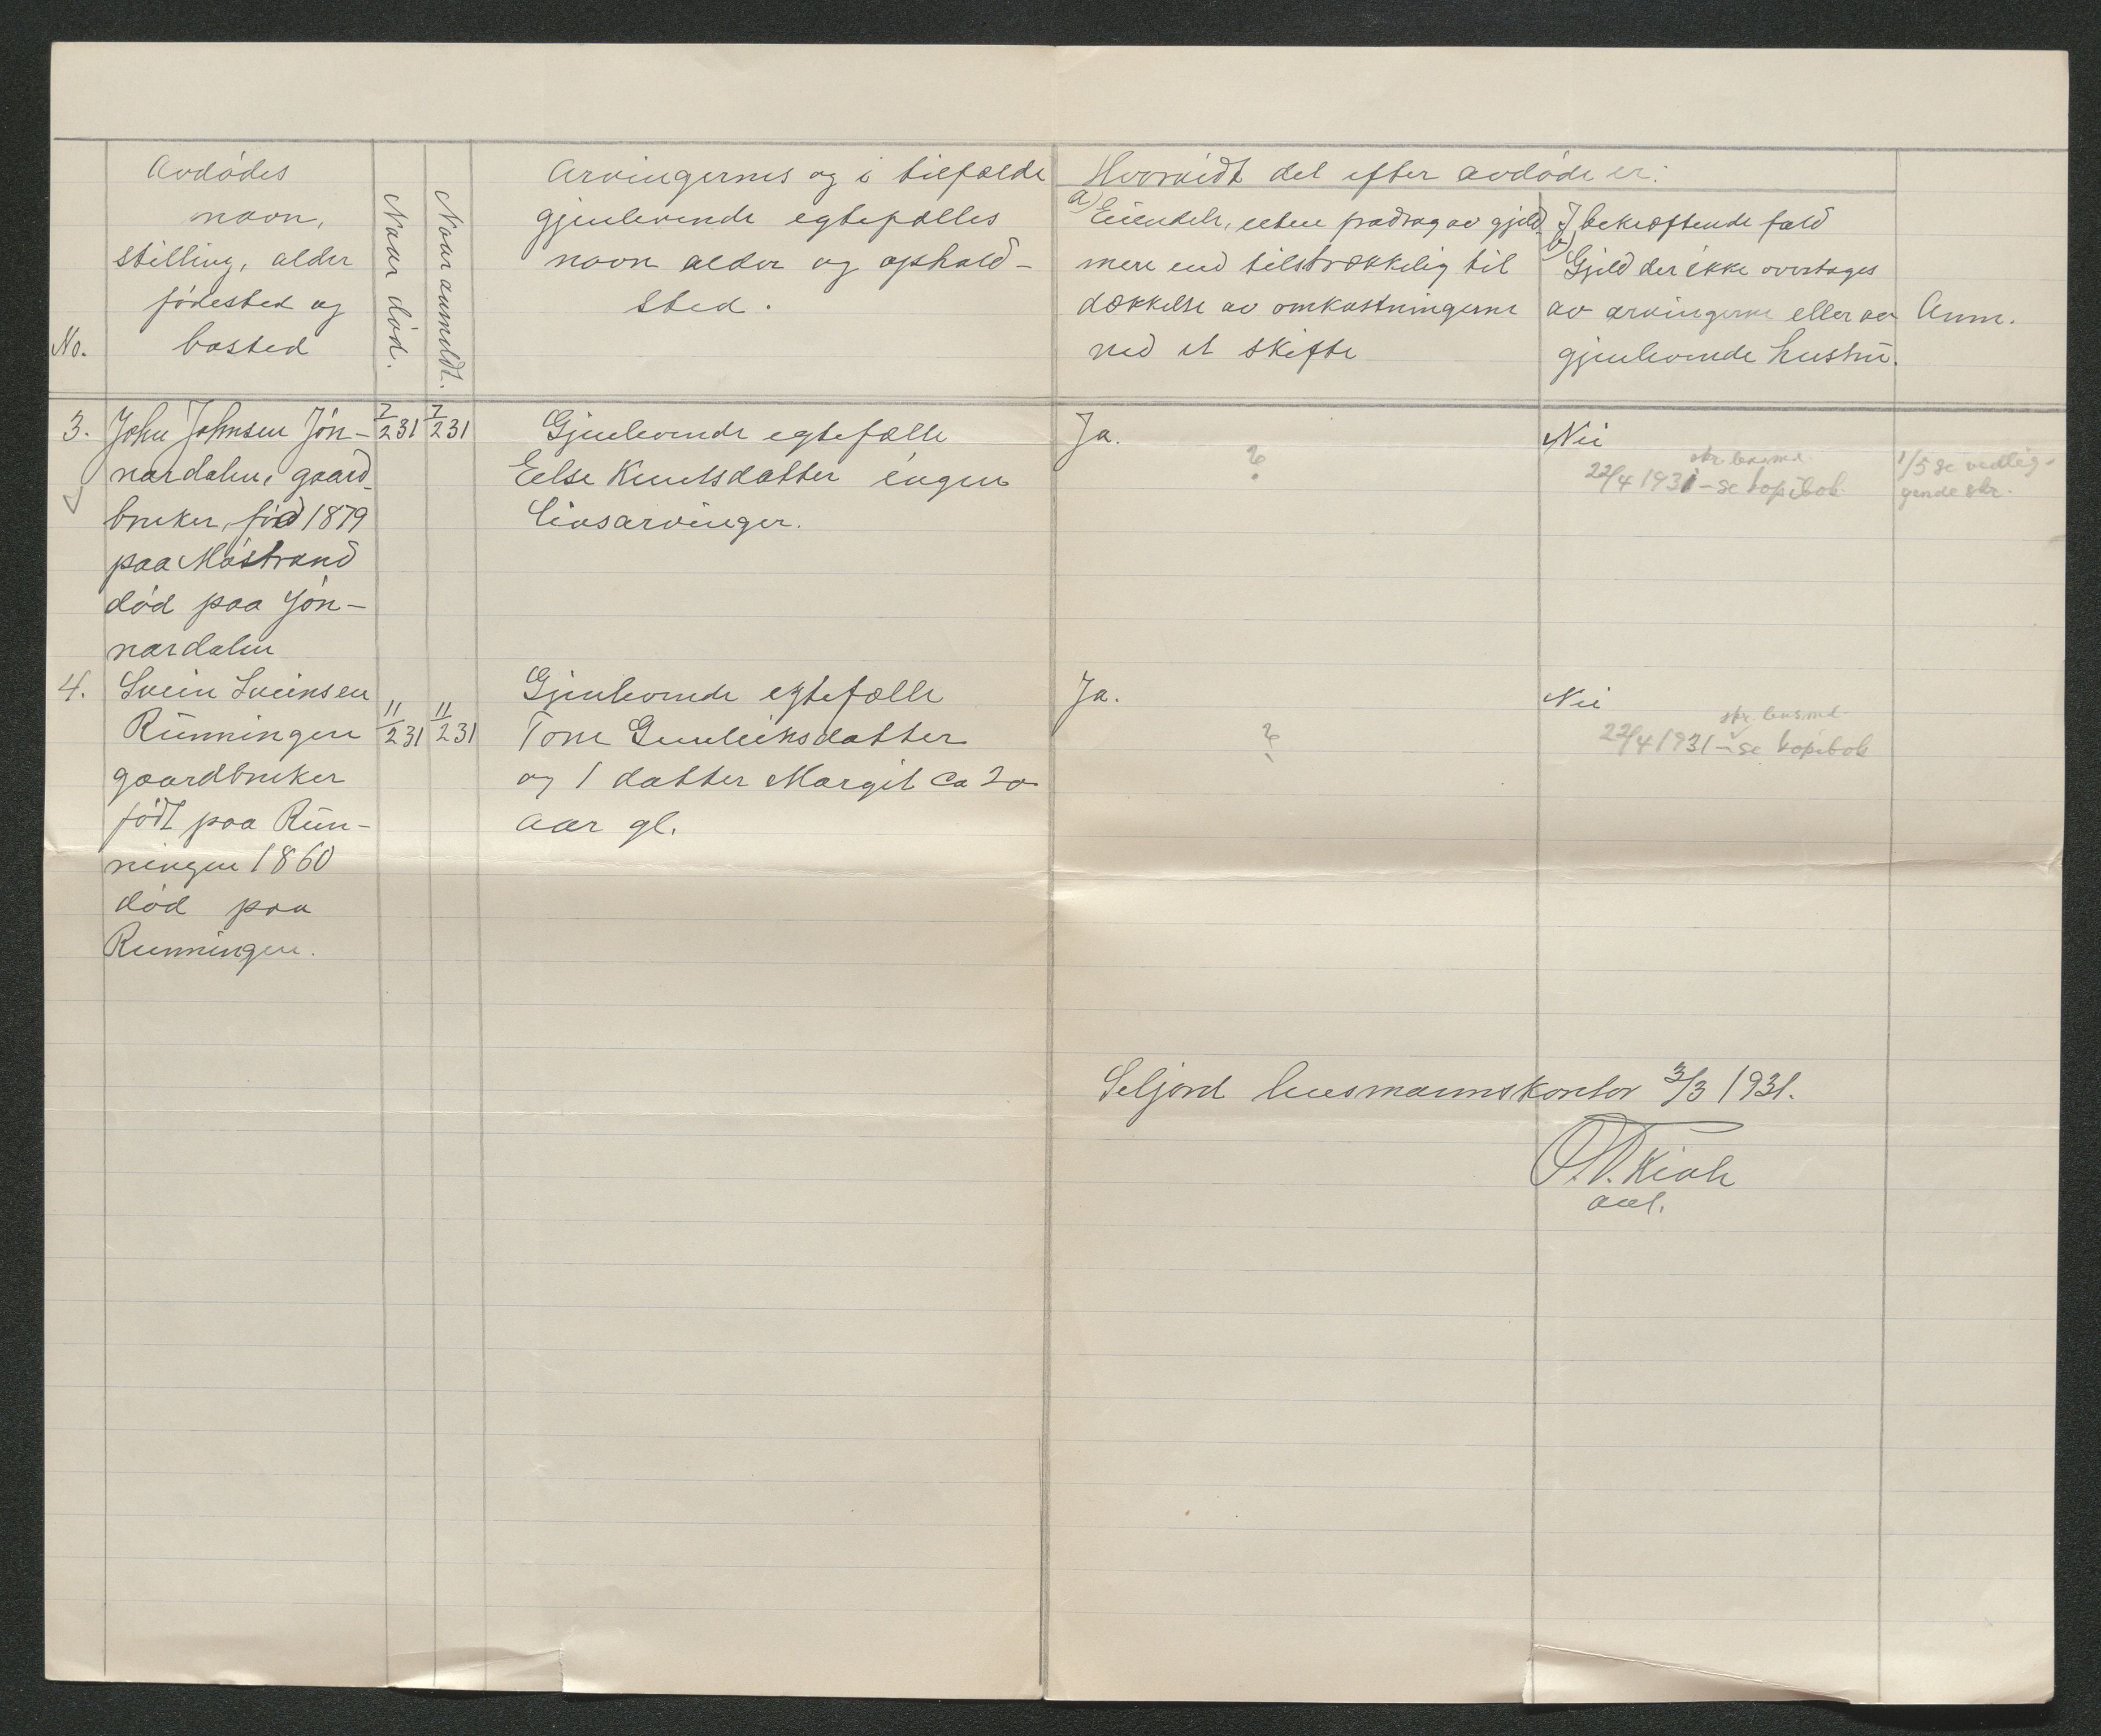 No.
Avdødes
navn,
stilling, alder
fødested og
bosted
Naar død.
Naar anmeldt.
Arvingernes og i tilfælde
gjenlevende egtefælles
navn alder og ophold-
sted.
Hvorvidt det efter avdøde er:
a) Eiendele, uten fradrag av gjeld
mere end tilstrækkelig til
dækkelse av omkostningerne
ved et skifte
I bekræftende fald
b) Gjeld der ikke overtages
av arvingerne eller av
gjenlevende hustru.
Anm.
3.
John Johnsen Jøn-
nardalen, gaard-
bruker, fød 1879
paa Møstrand
død paa Jøn-
nardalen
7/2 31
7/2 31
Gjenlevende egtefælle
Eelse Knutsdatter ingen
livsarvinger.
Ja.
?
Nei
skr. lensmd.
22/4 1931 - se kopibok
1/5 se vedlig-
gende skr.
4.
Svein Sveinsen
Rūnningen
gaardbruker
født paa Rūn-
ningen 1860
død paa
Runningen.
11/2 31
11/2 31
Gjenlevende egtefælle
Tone Gunleiksdatter
og 1 datter Margit ca 20
aar gl.
Ja.
?
Nei
skr. lensmd.
22/4 1931 - se kopibok
Seljord lensmannskontor 3/3 1931.